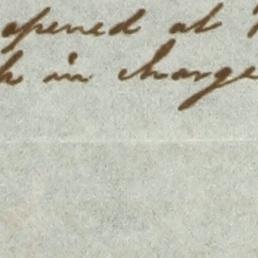 opened at
h in charge